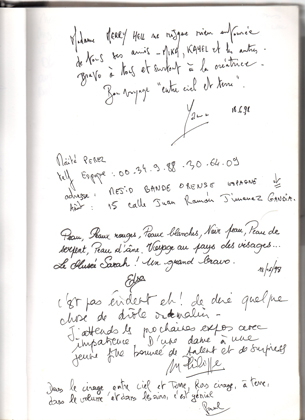 Madame MERRY HELL ne
de tous ses amis - MIKA, KAMEL et les autres.
Bravo à tous et surtout à la créatrice.
Bon voyage "entre ciel et terre".
Maïté PEREZ
telf Espagne : 00.34.9.88.30.64.09
15 calle Juan Ramón Jimenez GANDIA.
Peau, Peaux rouges, Peaux blanches, Noir peau, Peau de
serpent, Peau d'âne, Voyage au pays des visages...
Le Musée Sarah! Un grand bravo.
c'est pas évident eh! de dire quelque
chose de drôle
J'attends les prochaines expos avec
impatience. D'une dame à une
jeune fille bourrée de talent et de
Dans le cirage entre ciel et Terre, hors cirage, à terre,
dans le velours et dans les airs, c'est génial